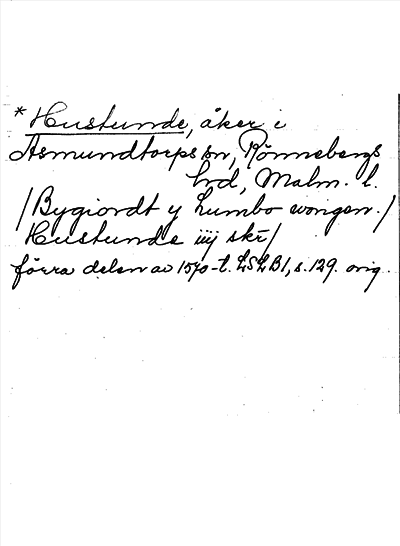 * Hustunde, åker i
Asmundtorps sn, Rönnebergs
hrd, Malm. l.
/Bygiordt y Lumbo wongen./
Hustunde iiij skr/
förra delen av 1570-t. LSLB1, s. 129. orig.